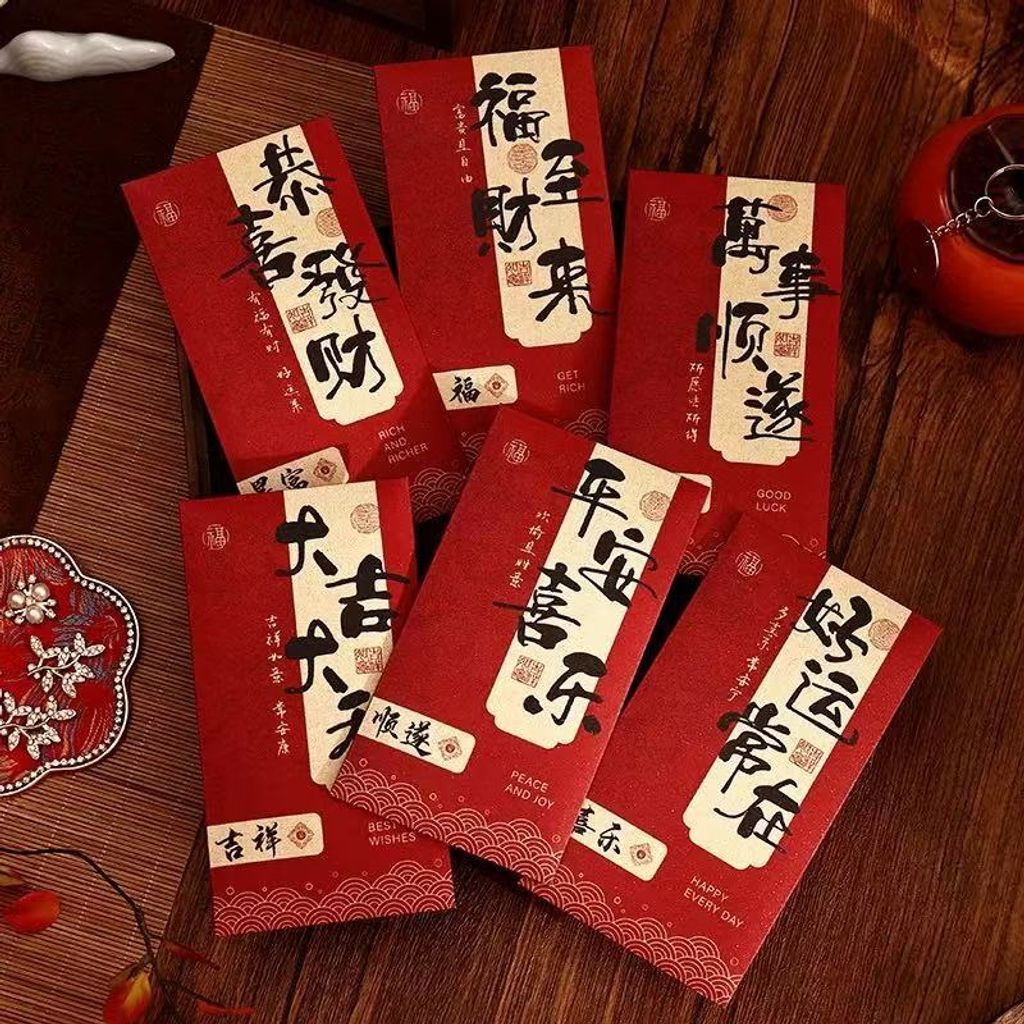 福
恭喜發财
有福有财 好运来
RICH
AND
RICHER
福
福至財来
富贵且自由
福
GET
RICH
福
萬事顺遂
所愿皆所得
GOOD
LUCK
福
大吉大
吉祥如意 常安康
吉祥
BEST
WISHES
福
平安喜乐
欢愉且胜意
顺遂
PEACE
AND JOY
福
好运常在
多喜乐 常安宁
喜乐
HAPPY
EVERY DAY